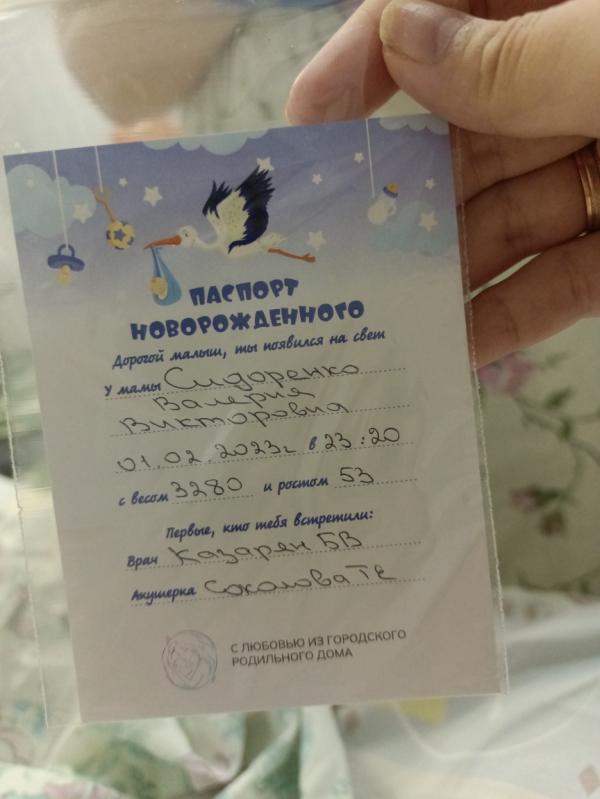 ПАСПОРТ
НОВОРОЖДЕННОГО
Дорогой малыш, ты появился на свет
У мамы Сидоренко
Валерия
Викторовна
01.02.2023г в 23:20
с весом 3280 и ростом 53
Первые, кто тебя встретили:
Врач Казарян БВ
Акушерка Соколова ТЕ
С ЛЮБОВЬЮ ИЗ ГОРОДСКОГО
РОДИЛЬНОГО ДОМА